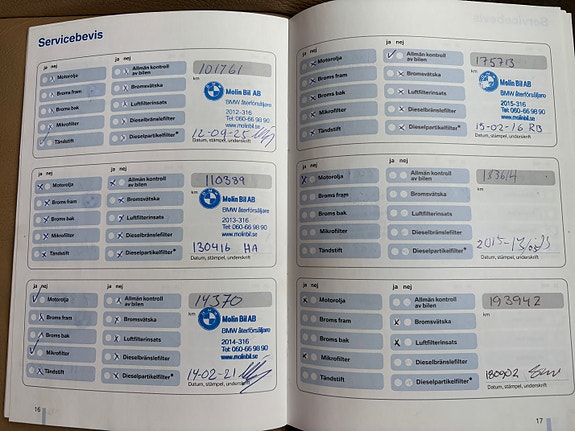 Servicebevis
ja nej ja nej
Motorolja
Allmän kontroll av bilen
101761
km
Broms fram
Bromsvätska
Molin Bil AB
BMW återförsäljare
Broms bak
Luftfilterinsats
2012-316
Tel: 060-66 98 90
www.molinbil.se
Mikrofilter
Dieselbränslefilter
Tändstift
Dieselpartikelfilter*
12-09-25
Datum, stämpel, underskrift
ja nej ja nej
Motorolja
Allmän kontroll av bilen
110389
km
Broms fram
Bromsvätska
Molin Bil AB
BMW återförsäljare
Broms bak
Luftfilterinsats
2013-316
Tel: 060-66 98 90
www.molinbil.se
Mikrofilter
Dieselbränslefilter
Tändstift
Dieselpartikelfilter*
130416 HA
Datum, stämpel, underskrift
ja nej ja nej
Motorolja
Allmän kontroll av bilen
14370
km
Broms fram
Bromsvätska
Molin Bil AB
BMW återförsäljare
Broms bak
Luftfilterinsats
2014-316
Tel: 060-66 98 90
www.molinbil.se
Mikrofilter
Dieselbränslefilter
Tändstift
Dieselpartikelfilter*
14-02-21
Datum, stämpel, underskrift
16
ja nej ja nej
Motorolja
Allmän kontroll av bilen
175713
km
Broms fram
Bromsvätska
Molin Bil AB
BMW återförsäljare
Broms bak
Luftfilterinsats
2015-316
Tel: 060-66 98 90
www.molinbil.se
Mikrofilter
Dieselbränslefilter
Tändstift
Dieselpartikelfilter*
15-02-16 RB
Datum, stämpel, underskrift
ja nej ja nej
Motorolja
Allmän kontroll av bilen
km
Broms fram
Bromsvätska
Broms bak
Luftfilterinsats
Mikrofilter
Dieselbränslefilter
Tändstift
Dieselpartikelfilter*
Datum, stämpel, underskrift
ja nej ja nej
Motorolja
Allmän kontroll av bilen
193942
km
Broms fram
Bromsvätska
Broms bak
Luftfilterinsats
Mikrofilter
Dieselbränslefilter
Tändstift
Dieselpartikelfilter*
180902
Datum, stämpel, underskrift
17